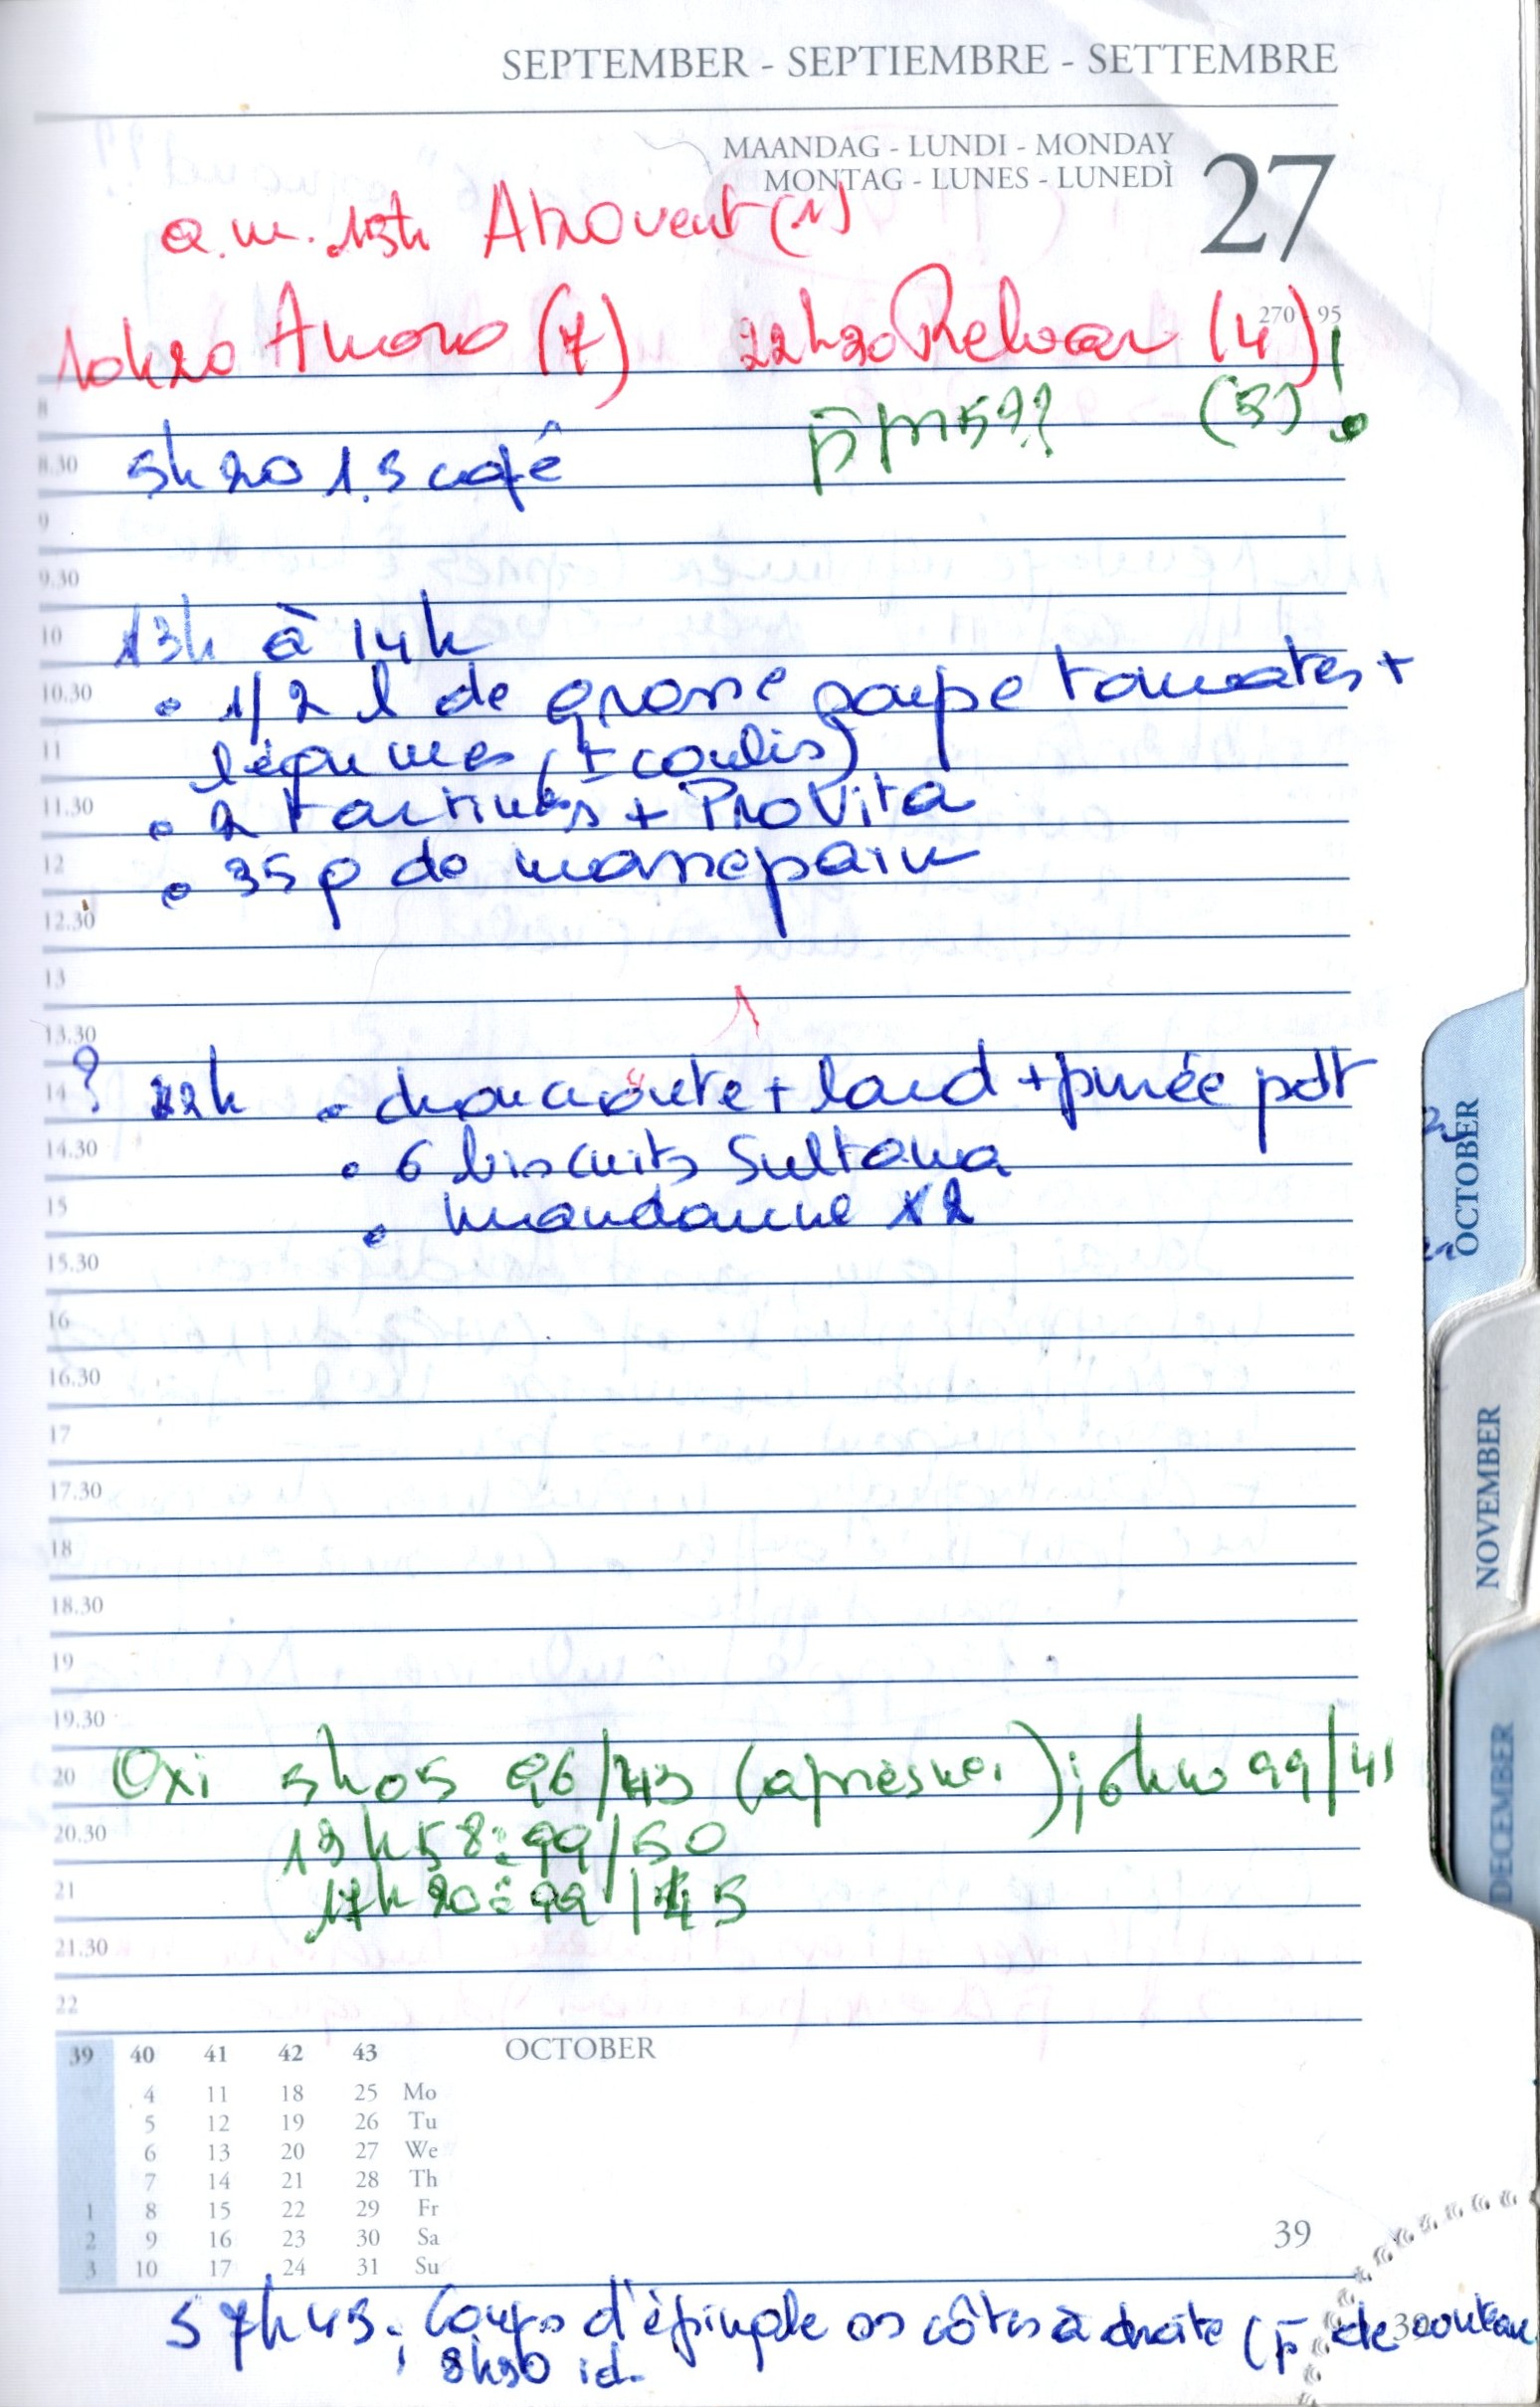 SEPTEMBER - SEPTIEMBRE - SETTEMBRE
MAANDAG - LUNDI - MONDAY
MONTAG - LUNES - LUNEDÌ
27
a.m. 13h Atrovent (1)
270 - 95
10h20 (7) 22h20 Relvar (4)!
(5)
8
8.30
5h20 1.5 café
9
9.30
13h à 14h
10
10.30
• 1/2 l de grosse soupe tomates +
11
légumes (+ coulis)
11.30
• 2 tartines + ProVita
12
• 35 g de massepain
12.30
13
13.30
14
? 22h • choucroute + lard + purée pdt
14.30
• 6 biscuits Sultana
15
• mandarine x2
15.30
16
16.30
17
17.30
18
18.30
19
19.30
20
Oxi 5h05 96/43 (après ); 99/41
20.30
13h58: 99/50
21
17h20: 99/45
21.30
22
OCTOBER
39 40 41 42 43
4 11 18 25 Mo
5 12 19 26 Tu
6 13 20 27 We
7 14 21 28 Th
1 8 15 22 29 Fr
2 9 16 23 30 Sa
3 10 17 24 31 Su
39
7h45; Coups d'épingle os côtes à droite ( de couteau
8h30 id.
OCTOBER
NOVEMBER
DECEMBER